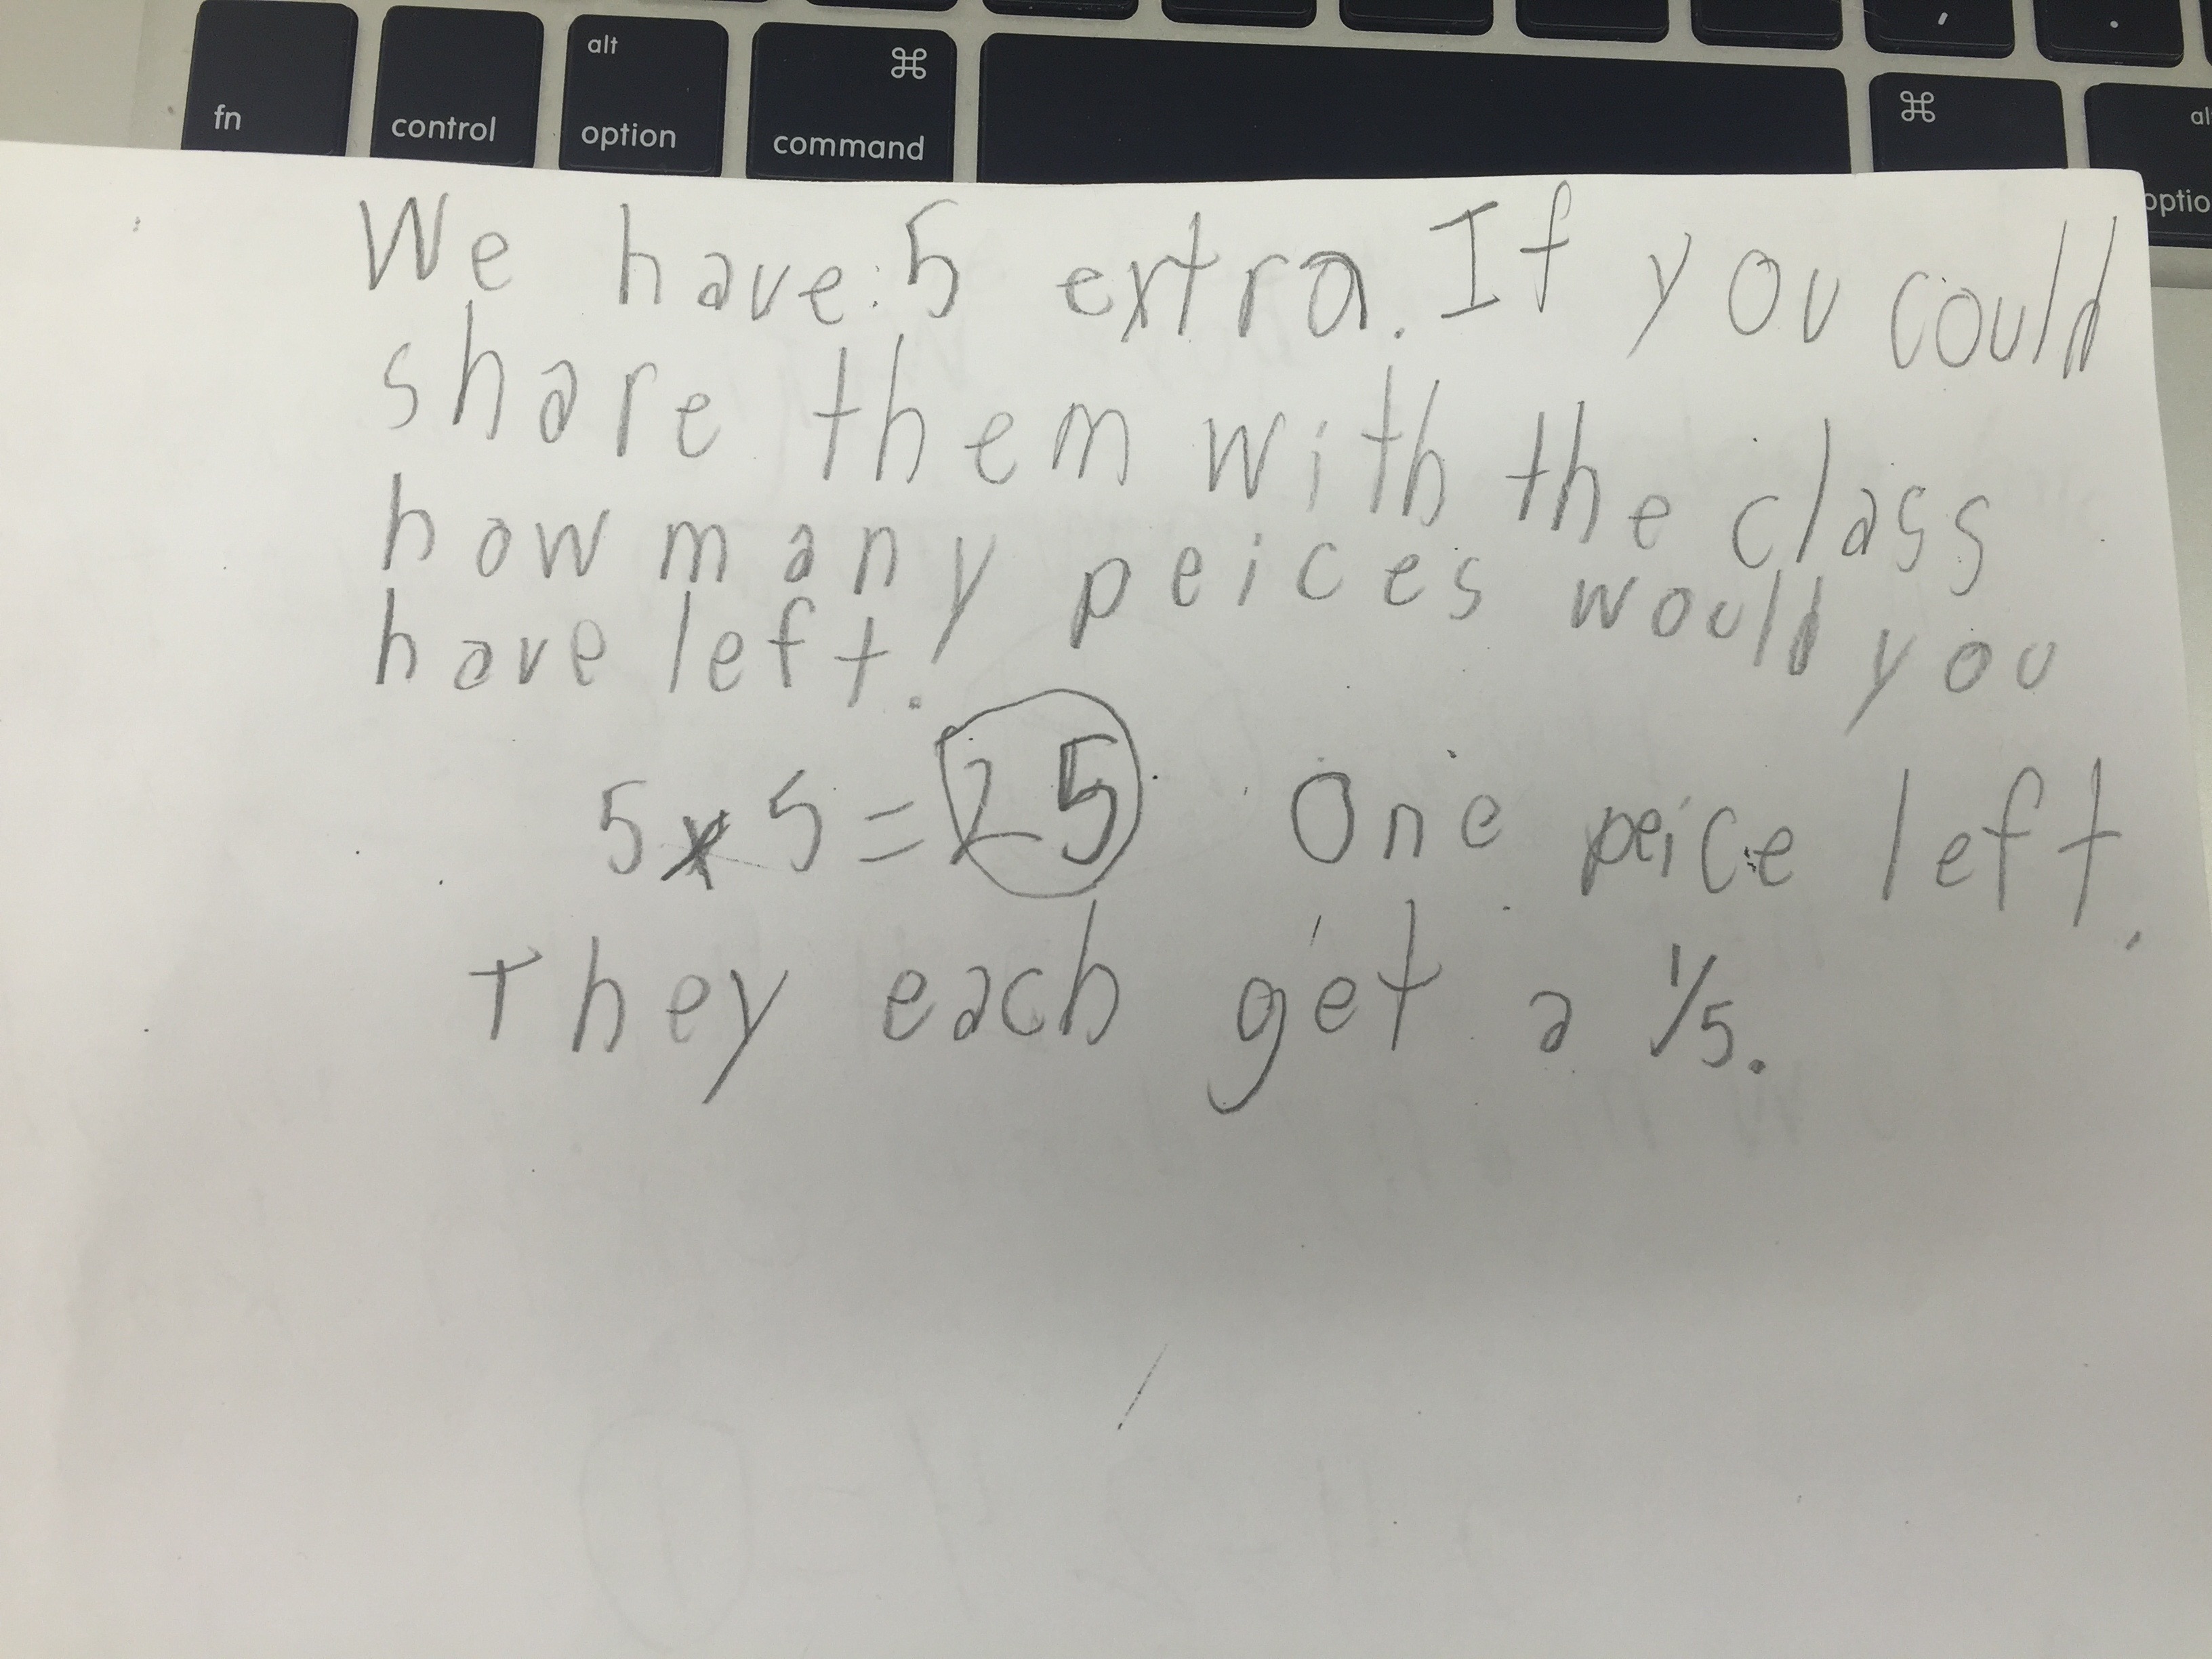 fn control alt option ⌘ command ⌘ , . al optio
We have 5 extra. If you could
share them with the class
how many peices would you
have left.
5 x 5 = 25 One peice left.
They each get a 1/5.